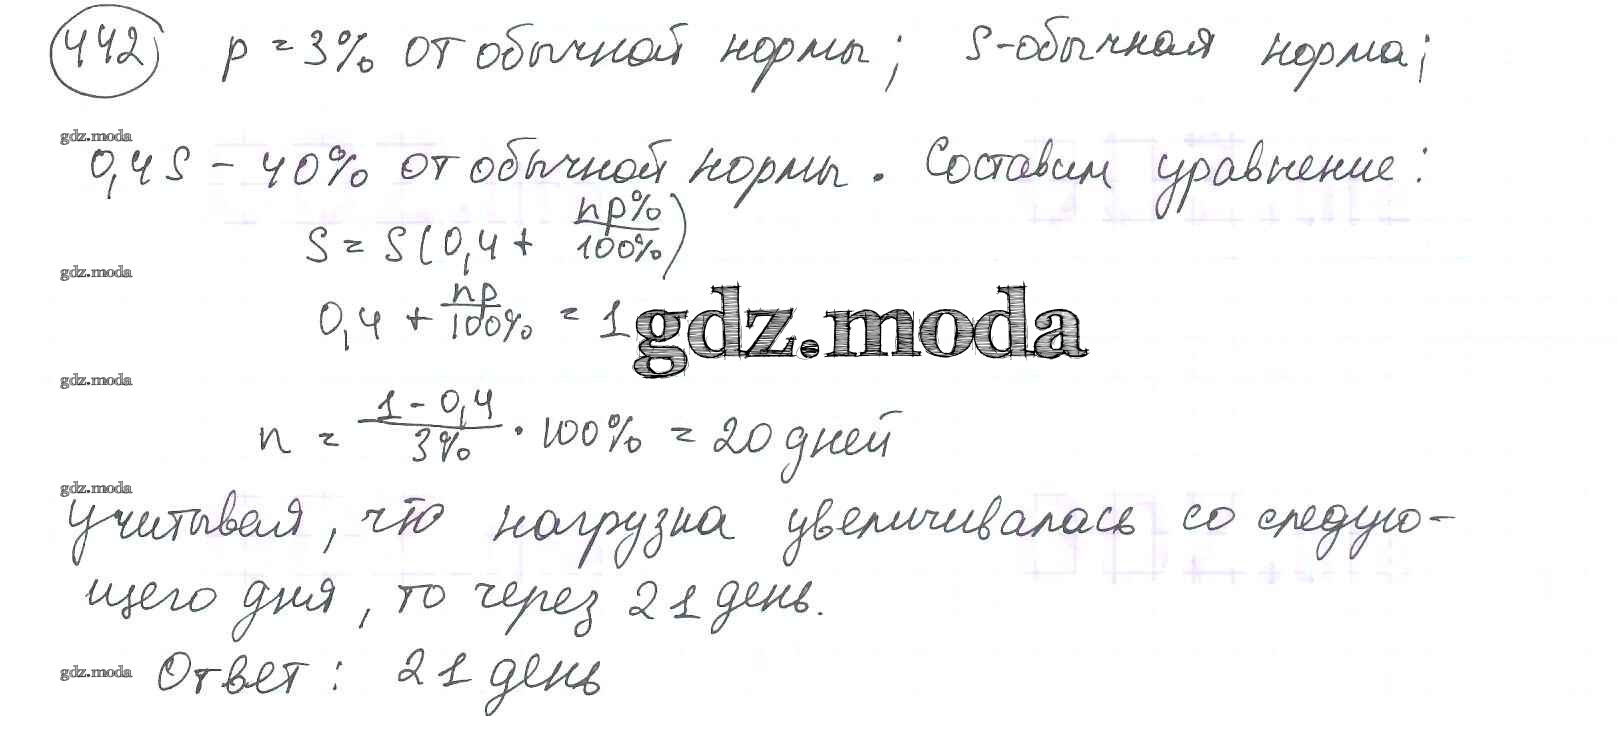 442 p = 3% от обычной нормы; S-обычная норма;
gdz.moda
0,4S - 40% от обычной нормы. Составим уравнение:
S = S(0,4 + np%/100%)
gdz.moda
0,4 + np/100% = 1
gdz.moda
gdz.moda
n = 1-0,4/3% · 100% = 20 дней
gdz.moda
Учитывая, что нагрузка увеличивалась со следую-
щего дня, то через 21 день.
gdz.moda Ответ: 21 день